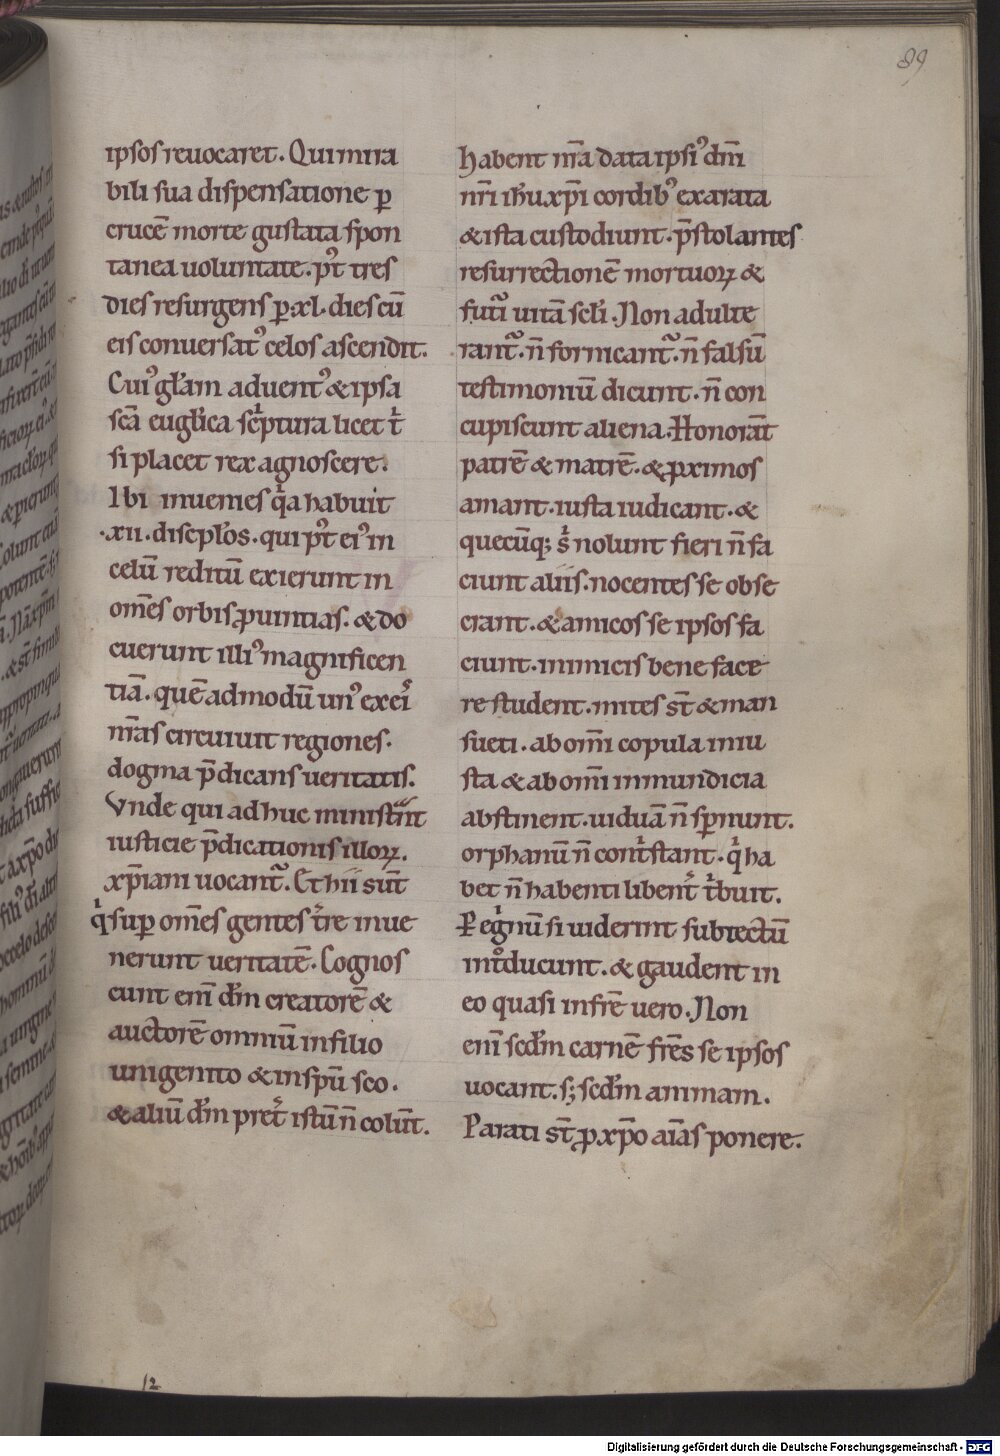 89
ipsos reuocaret. Qui mira
bili sua dispensatione ꝑ
crucē morte gustata spon
tanea uoluntate. pꝰt tres
dies resurgens ꝑ .xl. dies cū
eis conuersatꝰ celos ascendit.
Cuiꝰ gl̄am aduentꝰ & ipsa
scā eugl̄ica sc͛ptura licet t̄
si placet rex agnoscere.
Ibi inuenies q͛a habuit
.xii. discipl̄os. qui pꝰt eiꝰ in
celū reditū exierunt in
om̄es orbis ꝓuintias. & do
cuerunt illiꝰ magnificen
tiā. quē admodū unꝰ ex ei͛
nr̄as circuiuit regiones.
dogma p̄dicans ueritatis.
Vnde qui ad huc ministr̄nt
iusticie p̄dicationis illoꝝ.
xp̄iani uocant᷑. Et hii sūt
q͛ suꝑ om̄es gentes t͛re inue
nerunt ueritatē. Cognos
cunt eni᷑ dm̄ creatorē &
auctorē omniū in filio
unigenito & in spū sco.
& aliū dm̄ pret͛ istū n̄ colūt.
habent nr̄a data ipsiꝰ dn̄i
nr̄i ih̄u xp̄i cordibꝰ exarata
& ista custodiunt. p̄stolantes
resurrectionē mortuoꝝ &
futi᷑ uitā scl̄i. Non adulte
rant᷑. n̄ fornicant᷑. n̄ falsū
testimoniū dicunt. n̄ con
cupiscunt aliena. Honorāt
patrē & matrē. & ꝓximos
amant. iusta iudicant. &
quecūq; s͛ nolunt fieri n̄ fa
ciunt aliis. nocentes se obse
crant. & amicos se ipsos fa
ciunt. inimicis bene face
re student. mites st̄ & man
sueti. ab om̄i copula iniu
sta & ab om̄i inmundicia
abstinent. uiduā n̄ sꝑnunt.
orphanū n̄ cont͛stant. q͛ ha
bet n̄ habenti libent͛ t͛buit.
Peg͛nū si uiderint subtectū
intͦducunt. & gaudent in
eo quasi in fr̄e uero. Non
eni᷑ scd̄m carnē fr̄es se ipsos
uocant. s; scd̄m animam.
Parati st̄ ꝓ xp̄o aīas ponere.
12
Digitalisierung gefördert durch die Deutsche Forschungsgemeinschaft - DFG